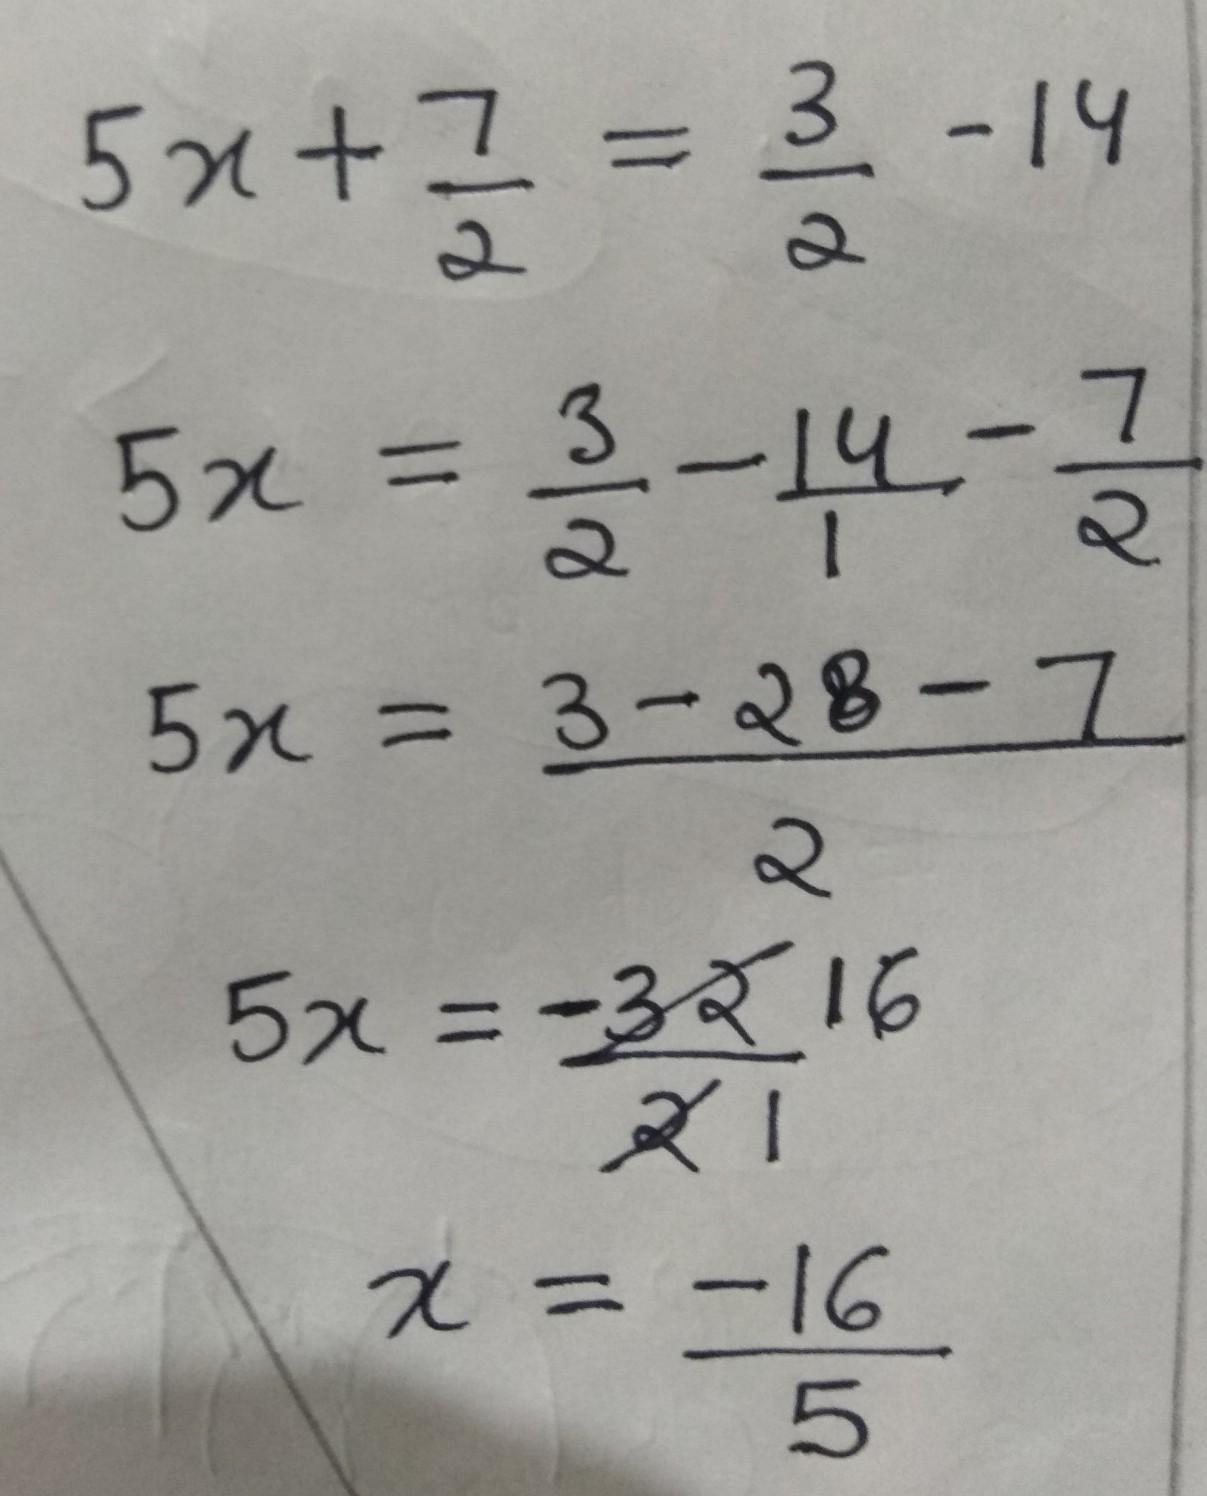 5x + 7/2 = 3/2 - 14
5x = 3/2 - 14/1 - 7/2
5x = 3 - 28 - 7 / 2
5x = -32/2 16/1
x = -16/5